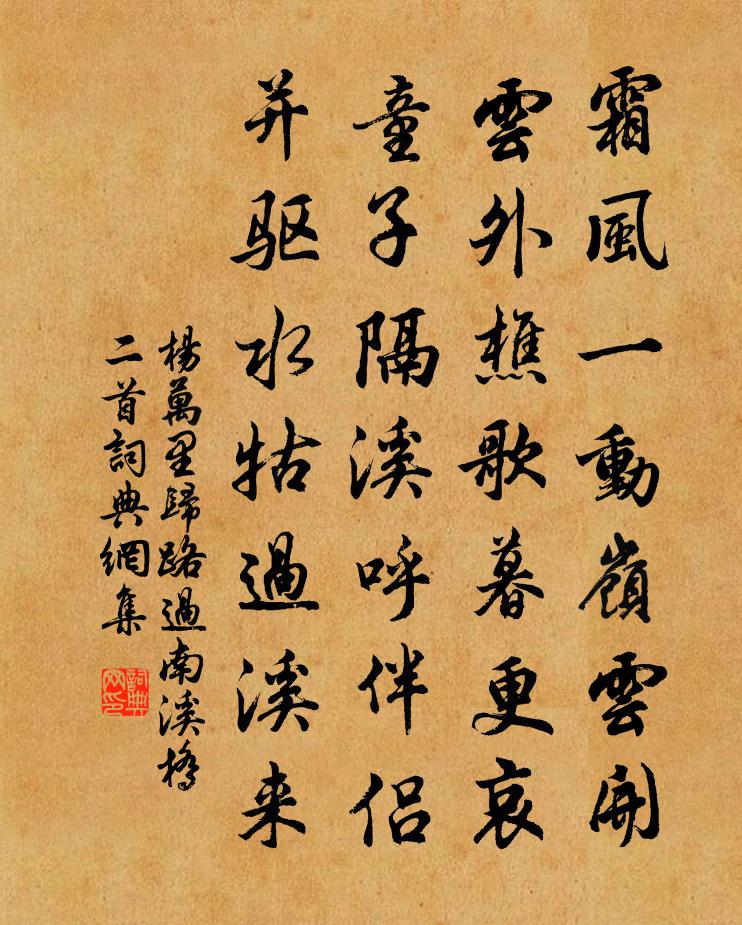 霜風一動嶺雲開
雲外樵歌暮更哀
童子隔溪呼伴侶
并驱水牯過溪来
楊萬里歸路過南溪橋
二首詞典網集
詞典网印